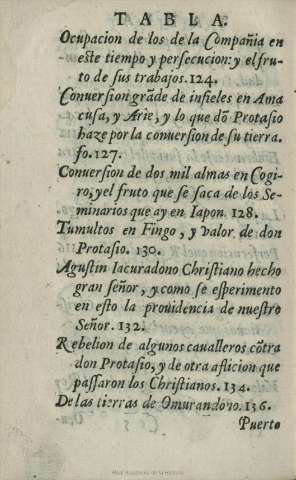 TABLA.
Ocupacion de los de la Compañia en
este tiempo y persecucion: y el fru-
to de sus trabajos. 124.
Conversion grãde de infieles en Ama
cusa, y Arie, y lo que dõ Protasio
haze por la conversion de su tierra.
fo. 127.
Conversion de dos mil almas en Cogi
ro, y el fruto que se saca de los Se-
minarios que ay en Iapon. 128.
Tumultos en Fingo, y valor de don
Protasio. 130.
Agustin Iacuradono Christiano hecho
gran señor, y como se esperimento
en esto la providencia de nuestro
Señor. 132.
Rebelion de algunos cavalleros cõtra
don Protasio, y de otra aflicion que
passaron los Christianos. 134.
De las tierras de Omurandono. 136.
Puerto
Real Academia de la Historia